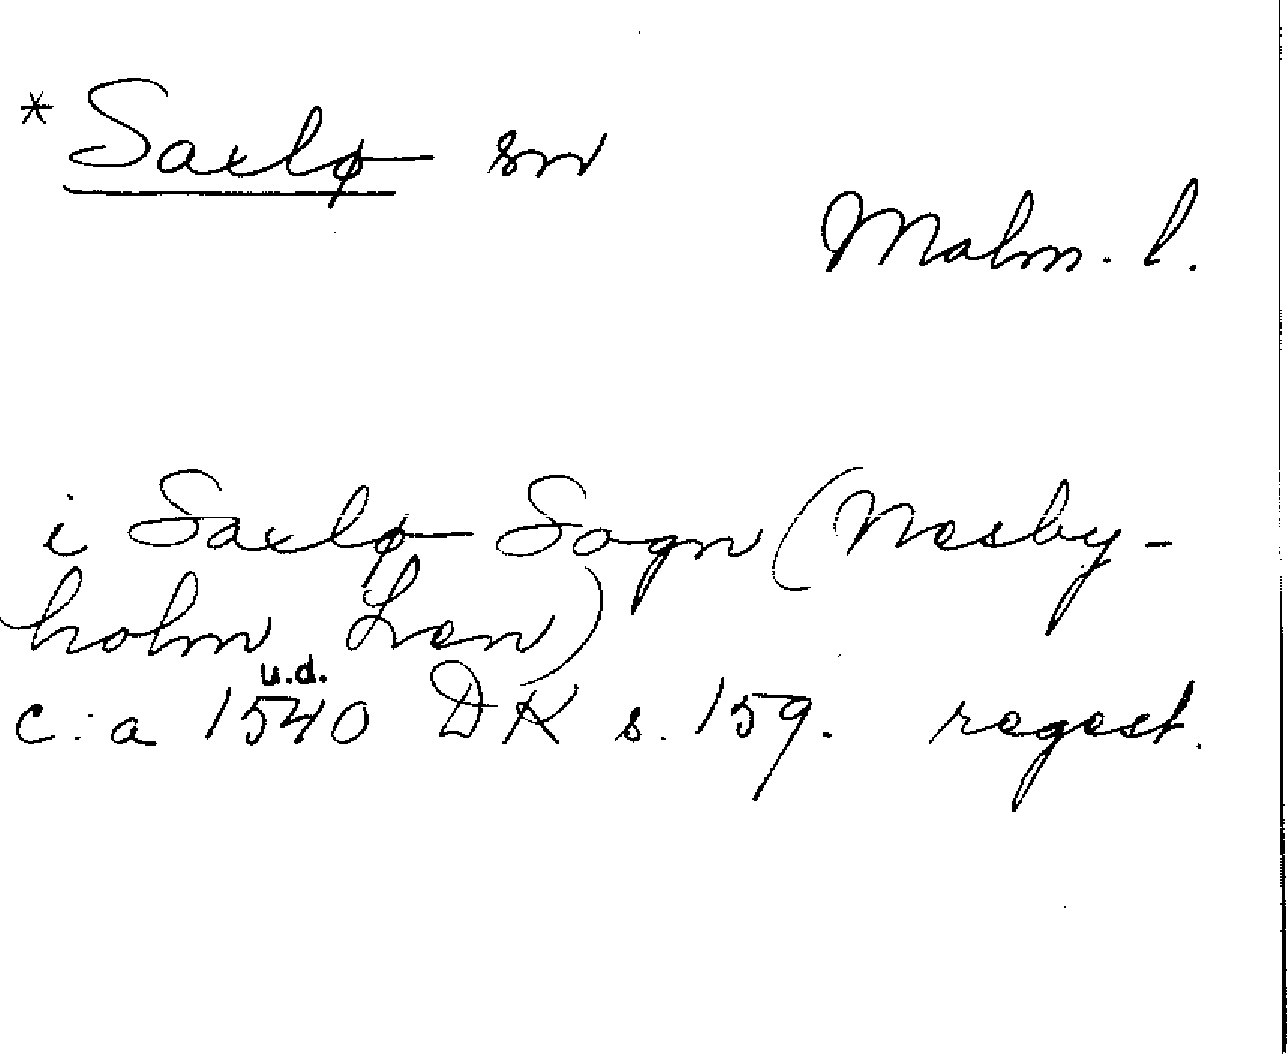 *Saxlø sn
Malm. l.
i Saxlø Sogn (Nesby-
holm Len)
u.d.
c:a 1540 DK s. 159. regest.